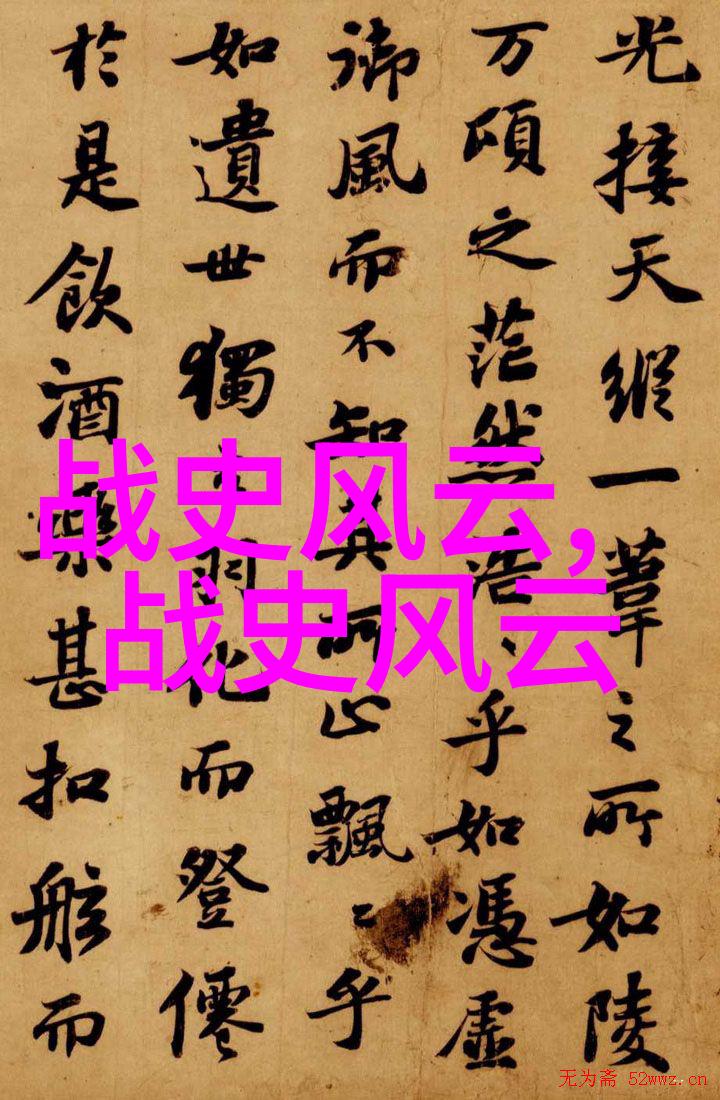 光接天縱一葦之所如陵
万頃之茫然浩〻乎如憑虛
御風而不知其所止飄〻乎
如遺世獨立羽化而登僊
於是飲酒樂甚扣舷而
战史风云,
战史风云
无为斋 52wwz.cn